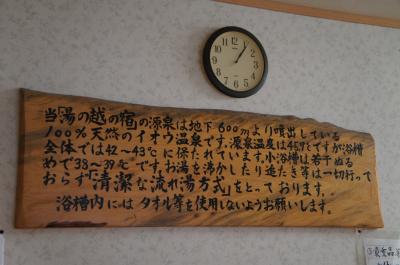 当「湯の越の宿」の源泉は地下600mより噴出している
100%天然のイオウ温泉です。源泉温度は45.9℃ですが浴槽
全体では42〜43℃に保たれています。小浴槽は若干ぬる
めで38〜39℃ですお湯を沸かしたり追だき等は一切行って
おらず「清潔な流れ湯方式」をとっております。
浴槽内にはタオル等を使用しないようお願いします。